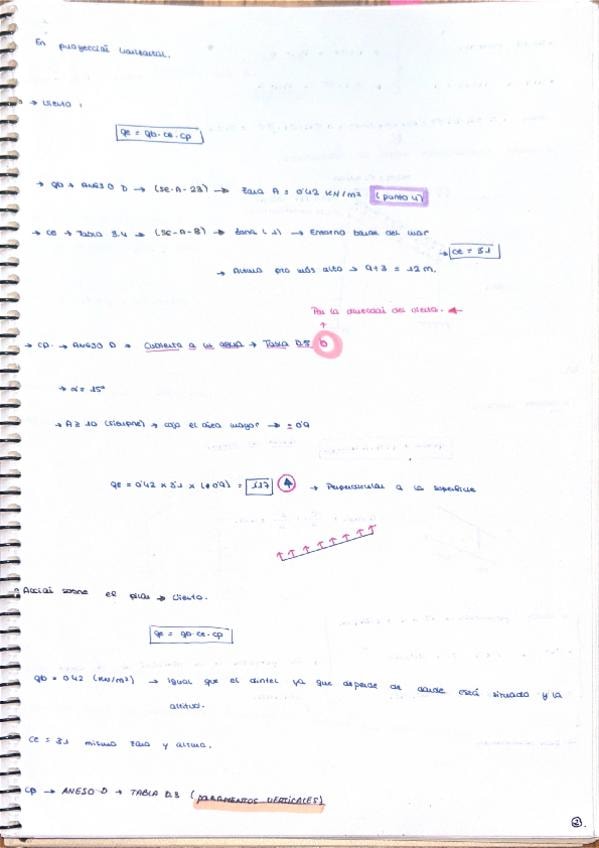 En proyección horizontal.
→ Viento :
qe = qb · ce · cp
→ qb → ANEJO D → (SE-A-23) → Zona A = 0'42 KN/m² (punto 4)
→ ce → Tabla 3.4 → (SE-A-8) → Zona (1) → Entorno borde del mar
→ ce = 3.1
→ Altura pto más alto → 9+3 = 12 m.
Por la dirección del viento. ←
→ cp. → ANEJO D → Cubierta a un agua → Tabla D.5 b
→ α = 15º
→ A ≥ 10 (siempre) → cojo el área mayor → - 0'9
qe = 0'42 x 3'1 x (-0'9) = 1.17 → Perpendicular a la superficie
Acción sobre el pilar → Viento.
qe = qb · ce · cp
qb = 0'42 (KN/m²) → Igual que el dintel ya que depende de donde está situado y la
altitud.
Ce = 3.1 misma zona y altura.
Cp → ANEJO D → TABLA D.3 (PARAMENTOS VERTICALES)
2.